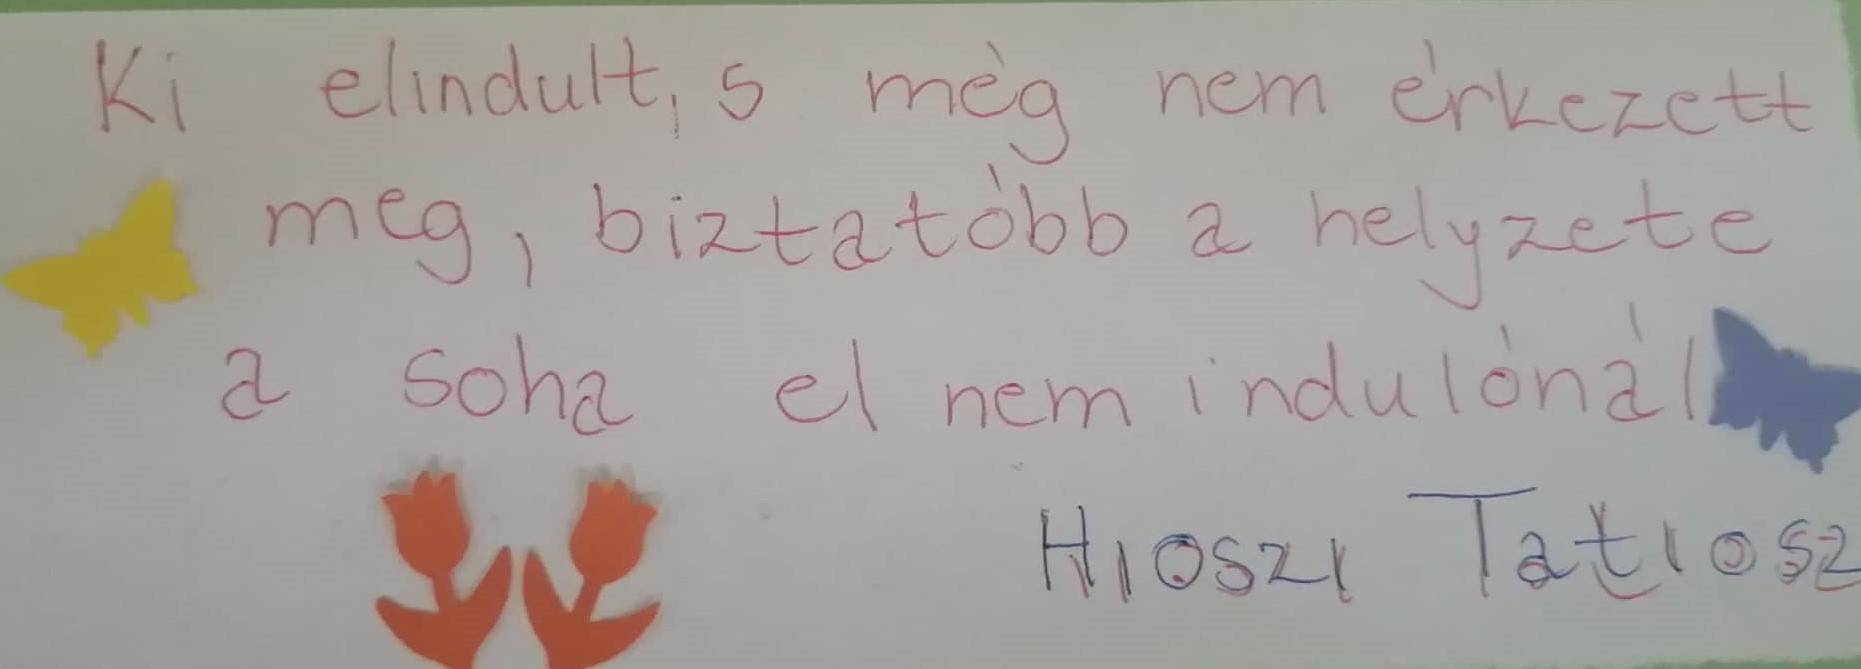 Ki elindult, s még nem érkezett
meg, biztatóbb a helyzete
a soha el nem indulónál
Hioszi Tatiosz